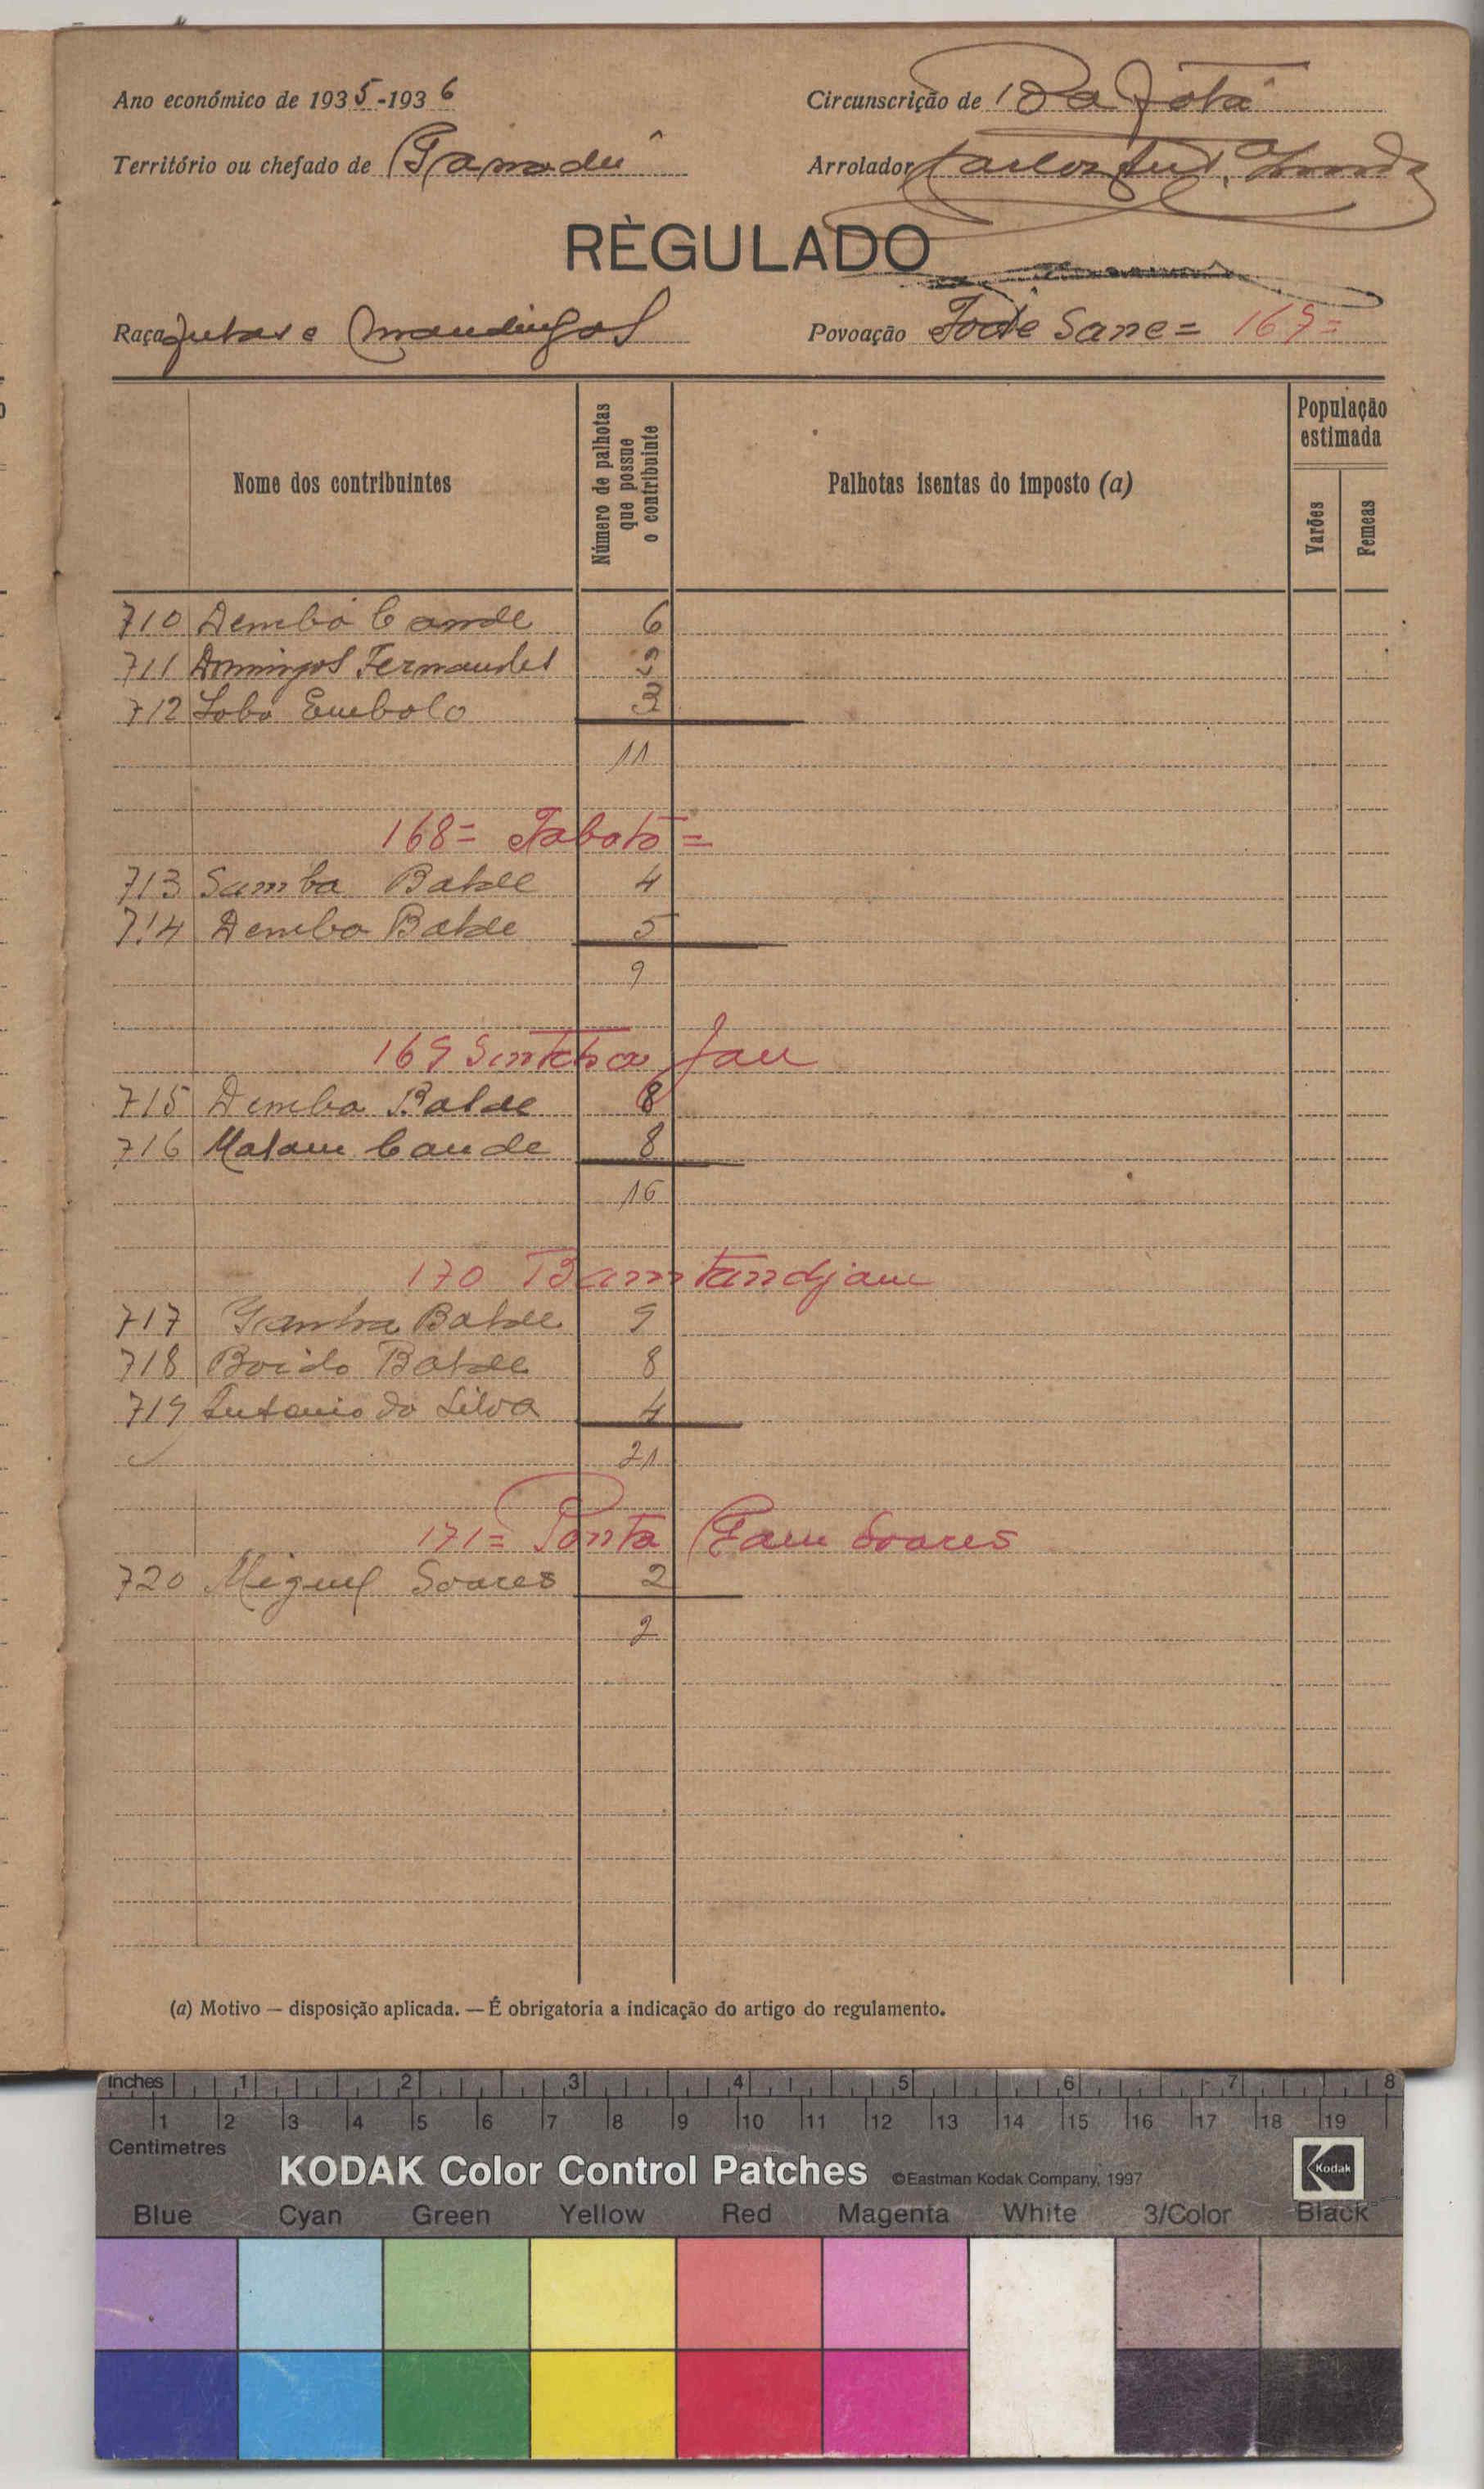 Ano económico de 1935-1936
Circunscrição de Bafatá
Território ou chefado de Ganadú
Arrolador Carlos
RÈGULADO
Raça Futas e mandingas
Povoação Fodé Sane = 167=
Nome dos contribuintes
Número de palhotas que possue o contribuinte
Palhotas isentas do imposto (a)
População estimada
Varões
Femeas
710 Demba Cande 6
711 Domingos Fernandes 2
712 Lobo Embalo 3
11
168= Tabatô =
713 Samba Balde 4
714 Demba Balde 5
9
169 Sintcha Jau
715 Demba Balde 8
716 Malam Cande 8
16
170 Bantandjam
717 Balde 9
718 Boido Balde 8
719 Antonio da Silva 4
21
171= Ponta Gam Soares
720 Miguel Soares 2
2
(a) Motivo — disposição aplicada. — É obrigatoria a indicação do artigo do regulamento.
Inches 1 2 3 4 5 6 7 8
1 2 3 4 5 6 7 8 9 10 11 12 13 14 15 16 17 18 19
Centimetres
KODAK Color Control Patches ©Eastman Kodak Company, 1997 Kodak
Blue Cyan Green Yellow Red Magenta White 3/Color Black